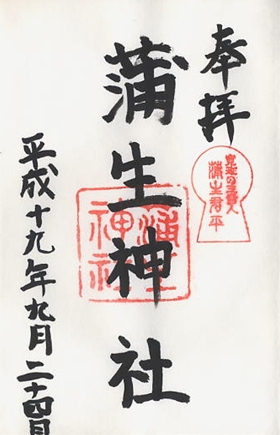 奉拝
寛政の三奇人
蒲生君平
蒲生神社
蒲生
神社
平成十九年九月二十四日